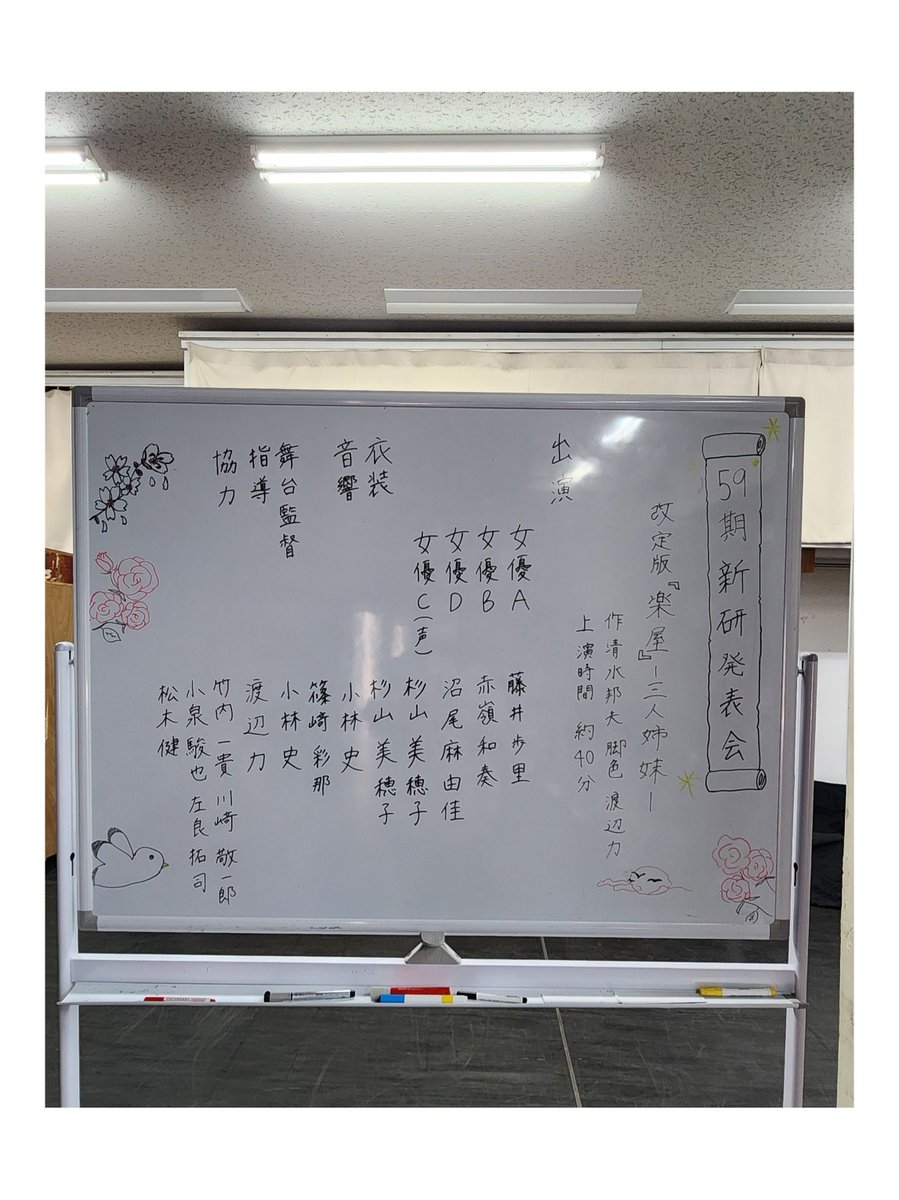 59期新研発表会
改定版『楽屋』ー三人姉妹ー
作 清水邦夫 脚色 渡辺力
上演時間 約40分
出演
女優A 藤井歩里
女優B 赤嶺和奏
女優D 沼尾麻由佳
女優C(声) 杉山美穂子
衣装 杉山美穂子
音響 小林史
篠崎彩那
舞台監督 小林史
指導 渡辺力
協力 竹内一貴 川崎敬一郎
小泉駿也 左良拓司
松木健